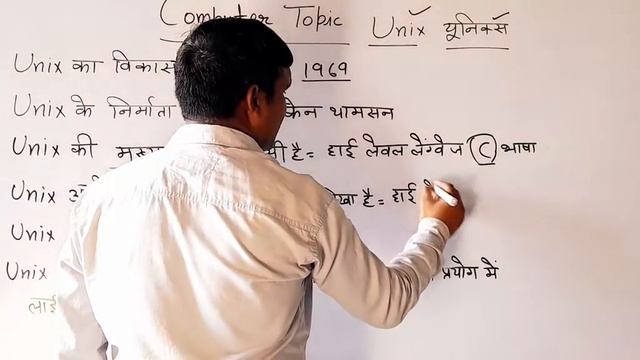 Computer Topic Unix यूनिक्स
Unix का विकास 1969
Unix के निर्माता केन थामसन
Unix की है = हाई लेवल लैंग्वेज (C) भाषा
Unix है = हाई
Unix
Unix प्रयोग में
लाई